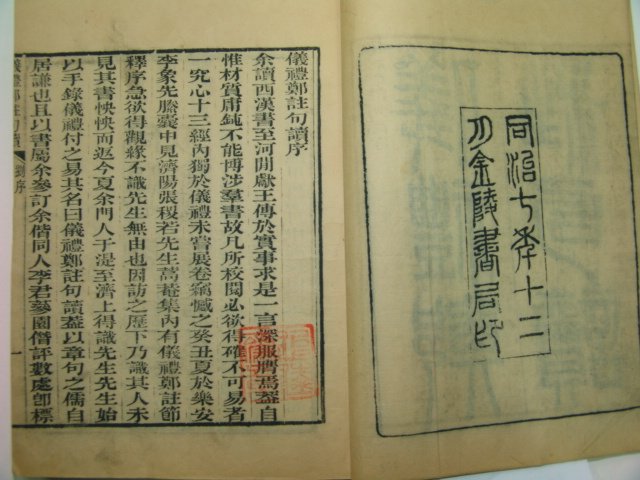 同治七年十二
月金陵書局印
儀禮鄭註句讀序
余讀西漢書至河間獻王傳於實事求是一言深服膺焉蓋自
惟材質庸鈍不能博涉羣書故凡所校閱必欲得確不可易者
一究心十三經內獨於儀禮未嘗展卷竊憾之癸丑夏於樂安
李象先縢囊中見濟陽張稷若先生蒿菴集內有儀禮鄭註節
釋序急欲得觀緣不識先生無由也因訪之歷下乃識其人未
見其書怏怏而返今夏余門人于湜至濟上得識先生先生始
以手錄儀禮付之易其名曰儀禮鄭註句讀蓋以章句之儒自
居謙也且以書屬余參訂余偕同人李君蔘園僭評數處卽標
儀禮鄭註句讀 劉序 一